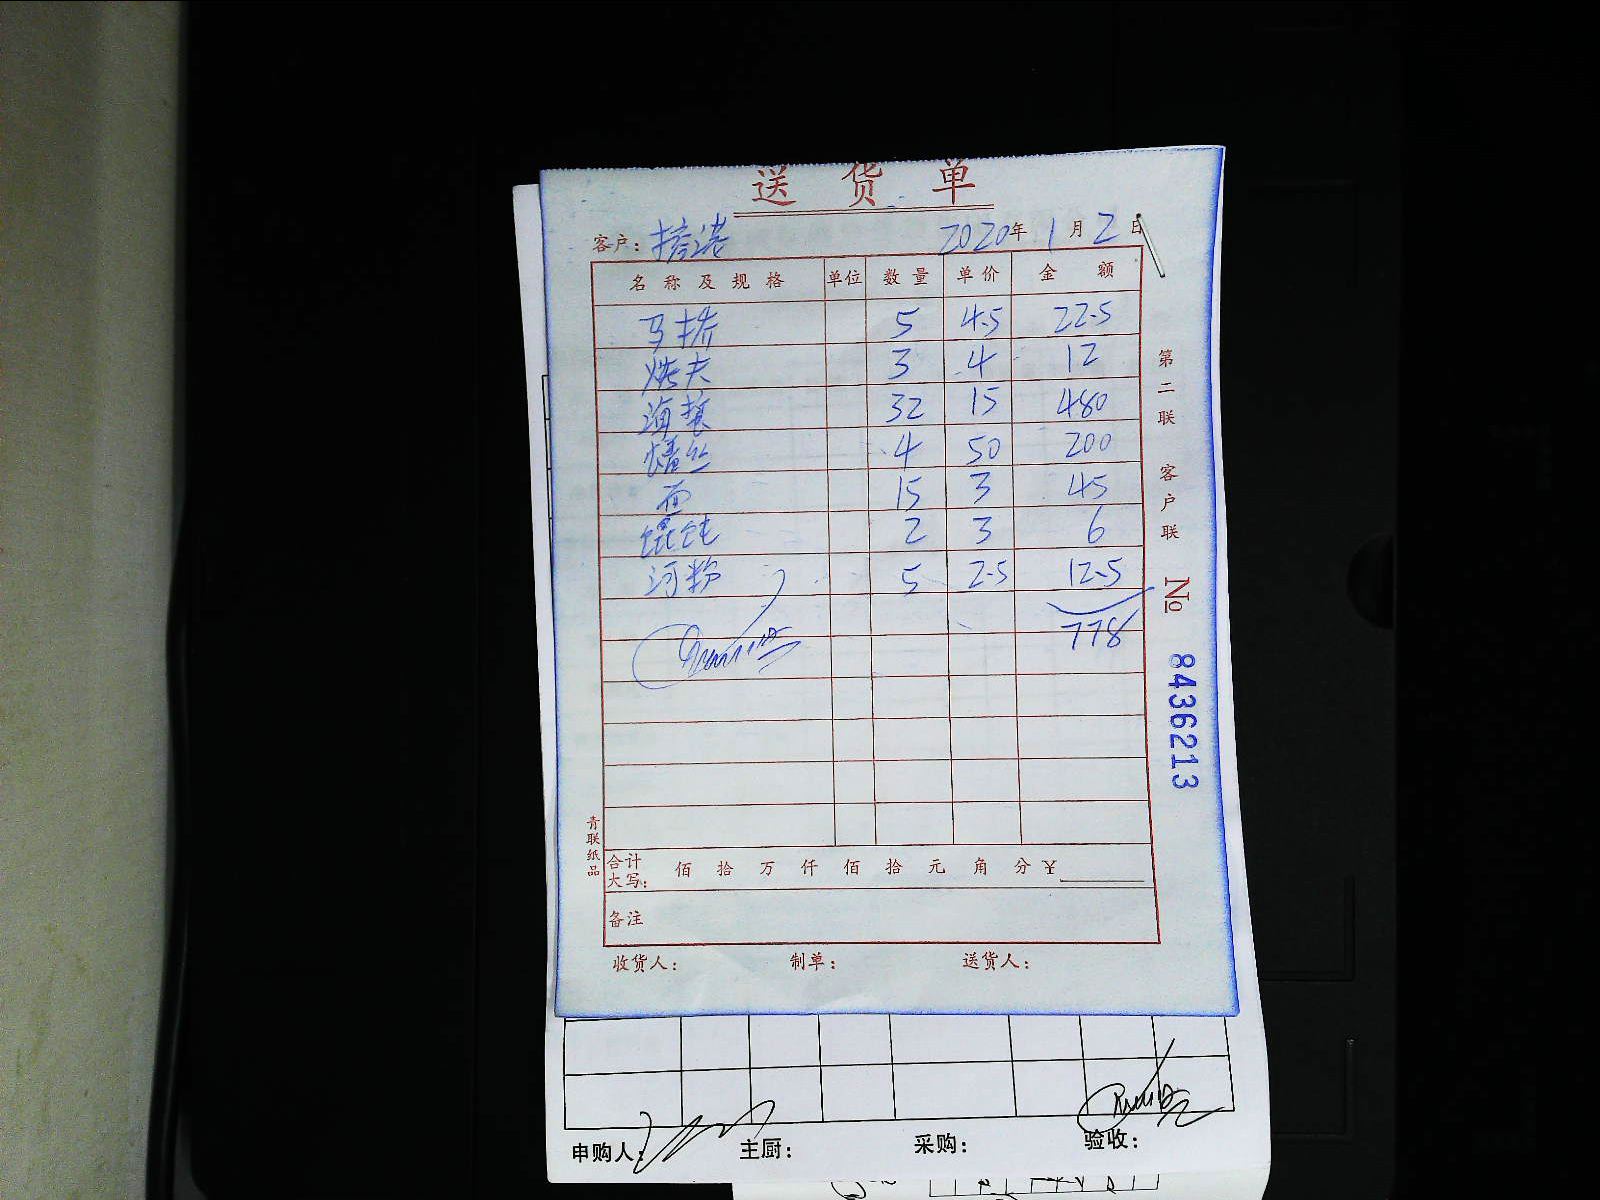 送 货 单
客户： 2020年 1 月 2 日
名 称 及 规 格 单位 数 量 单 价 金 额
马 5 4.5 22.5
烤夫 3 4 12
海 32 15 480
丝 4 50 200
面 15 3 45
馄饨 2 3 6
河粉 5 2.5 12.5
778
合计大写： 佰 拾 万 仟 佰 拾 元 角 分 ￥
备注
收货人： 制单： 送货人：
第二联 客户联 No 8436213
青联纸品
申购人： 主厨： 采购： 验收：